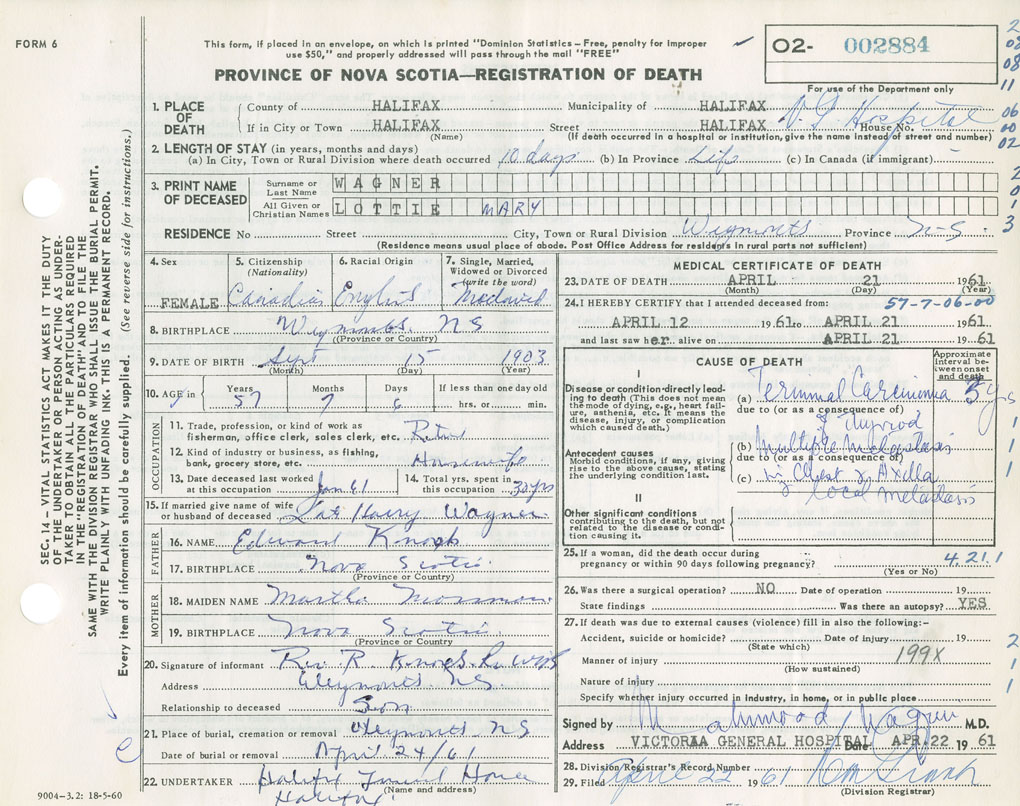 FORM 6
This form, if placed in an envelope, on which is printed "Dominion Statistics – Free, penalty for improper
use $50," and properly addressed will pass through the mail "FREE"
O2- 002884
For use of the Department only
PROVINCE OF NOVA SCOTIA—REGISTRATION OF DEATH
1. PLACE OF DEATH
County of HALIFAX Municipality of HALIFAX
If in City or Town HALIFAX Street HALIFAX House No. V.G. Hospital
(Name) (If death occurred in a hospital or institution, give the name instead of street and number)
2. LENGTH OF STAY (in years, months and days)
(a) In City, Town or Rural Division where death occurred 10 days (b) In Province Life (c) In Canada (if immigrant)
3. PRINT NAME OF DECEASED
Surname or Last Name WAGNER
All Given or Christian Names LOTTIE MARY
RESIDENCE No Street City, Town or Rural Division Province N-S.
(Residence means usual place of abode. Post Office Address for residents in rural parts not sufficient)
4. Sex FEMALE
5. Citizenship (Nationality) Canadian
6. Racial Origin English
7. Single, Married, Widowed or Divorced (write the word)
8. BIRTHPLACE NS
(Province or Country)
9. DATE OF BIRTH Sept 15 1903
(Month) (Day) (Year)
10. AGE in Years 57 Months 7 Days 6 If less than one day old hrs. or min.
OCCUPATION
11. Trade, profession, or kind of work as
fisherman, office clerk, sales clerk, etc. Retired
12. Kind of industry or business, as fishing,
bank, grocery store, etc. Housewife
13. Date deceased last worked at this occupation Jan 61
14. Total yrs. spent in this occupation 30 yrs
15. If married give name of wife or husband of deceased Late Harry Wagner
FATHER
16. NAME Edward
17. BIRTHPLACE Nova Scotia
(Province or Country)
MOTHER
18. MAIDEN NAME Martha
19. BIRTHPLACE Nova Scotia
(Province or Country)
20. Signature of informant Rev R
Address N.S.
Relationship to deceased Son
21. Place of burial, cremation or removal NS
Date of burial or removal April 24/61
22. UNDERTAKER Halifax Funeral Home
(Name and address)
Halifax
9004–3.2: 18-5-60
MEDICAL CERTIFICATE OF DEATH
23. DATE OF DEATH APRIL 21 1961
(Month) (Day) (Year)
24. I HEREBY CERTIFY that I attended deceased from: 57-7-06-00
APRIL 12 1961 to APRIL 21 1961
and last saw her alive on APRIL 21 1961
CAUSE OF DEATH
Approximate interval between onset and death
I
Disease or condition directly leading to death (This does not mean the mode of dying, e.g., heart failure, asthenia, etc. It means the disease, injury, or complication which caused death.)
(a) Terminal Carcinoma 5 yrs
due to (or as a consequence of)
of Thyroid
Antecedent causes
Morbid conditions, if any, giving rise to the above cause, stating the underlying condition last.
(b) multiple metastasis
due to (or as a consequence of)
(c) in Chest & Axilla
local metastasis
II
Other significant conditions
contributing to the death, but not related to the disease or condition causing it.
25. If a woman, did the death occur during
pregnancy or within 90 days following pregnancy? 4.21.1
(Yes or No)
26. Was there a surgical operation? NO Date of operation 19
State findings Was there an autopsy? YES
27. If death was due to external causes (violence) fill in also the following:-
Accident, suicide or homicide? Date of injury 19
(State which)
Manner of injury 199X
(How sustained)
Nature of injury
Specify whether injury occurred in industry, in home, or in public place
Signed by M.D.
Address VICTORIA GENERAL HOSPITAL Date APR.22 1961
28. Division Registrar's Record Number
29. Filed April 22 1961
(Division Registrar)
SEC. 14 – VITAL STATISTICS ACT MAKES IT THE DUTY
OF THE UNDERTAKER OR PERSON ACTING AS UNDER-
TAKER TO OBTAIN ALL THE PARTICULARS REQUIRED
IN THE "REGISTRATION OF DEATH" AND TO FILE THE
SAME WITH THE DIVISION REGISTRAR WHO SHALL ISSUE THE BURIAL PERMIT.
WRITE PLAINLY WITH UNFADING INK. THIS IS A PERMANENT RECORD.
Every item of information should be carefully supplied. (See reverse side for instructions.)